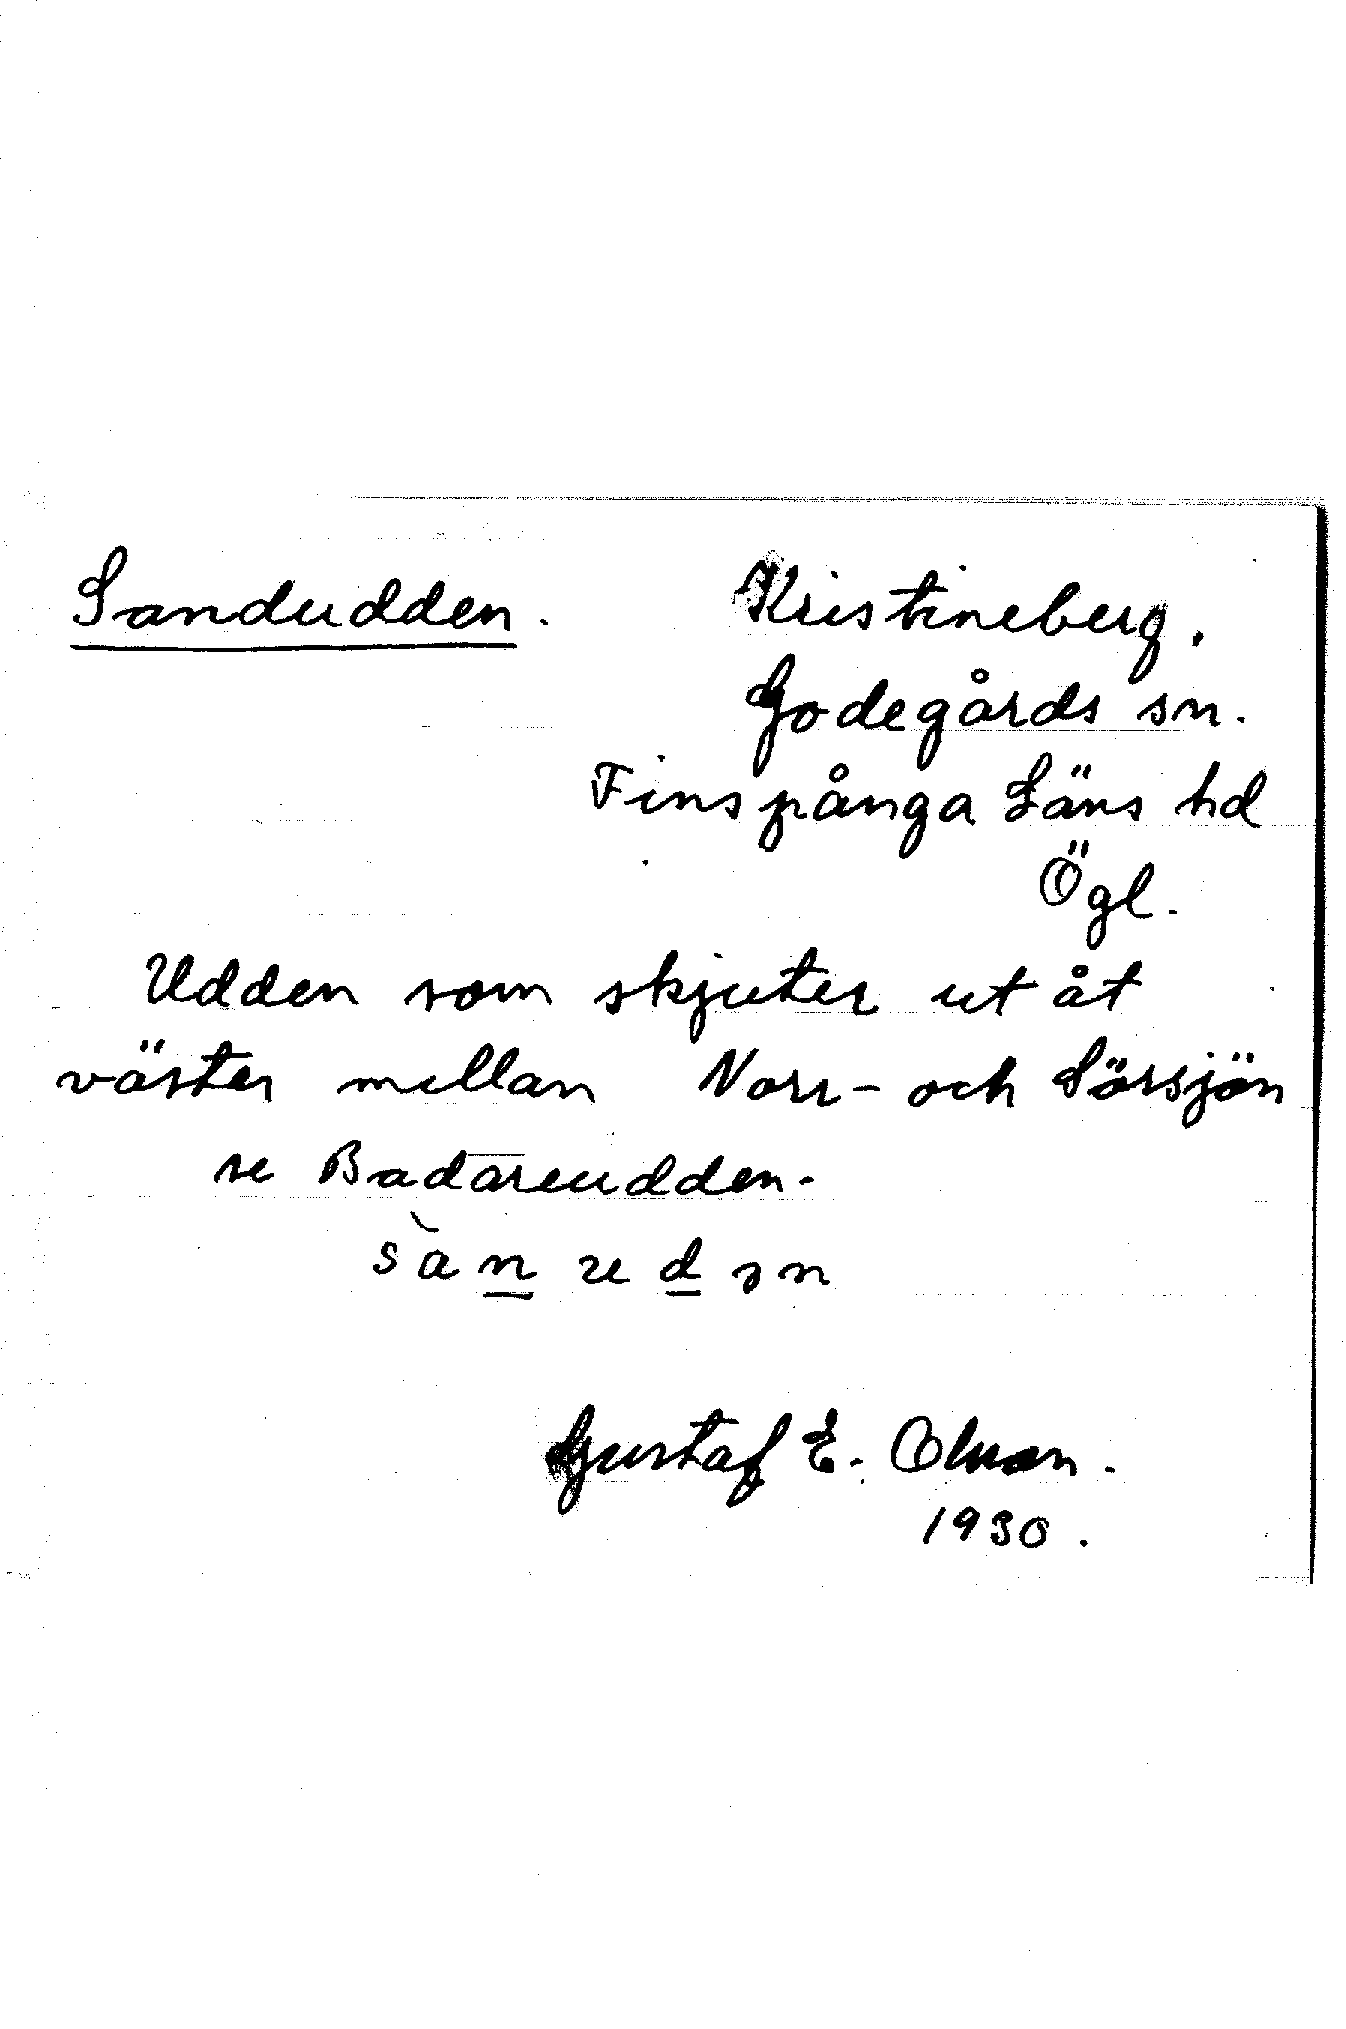 Sandudden.
Kristineberg.
Godegårds sn.
Finspånga Läns hd
Ögl.
Udden som skjuter ut åt
väster mellan Norr- och Sörsjön
se Badareudden.
Gustaf E. Olsson.
1930.